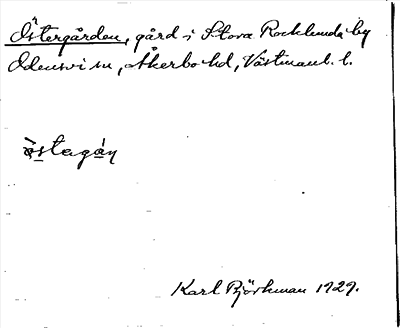 Östergården, gård i Stora Rocklunda by
Odensvi sn, Åkerbo hd, Västmanl. l.
östagán
Karl Björkman 1929.